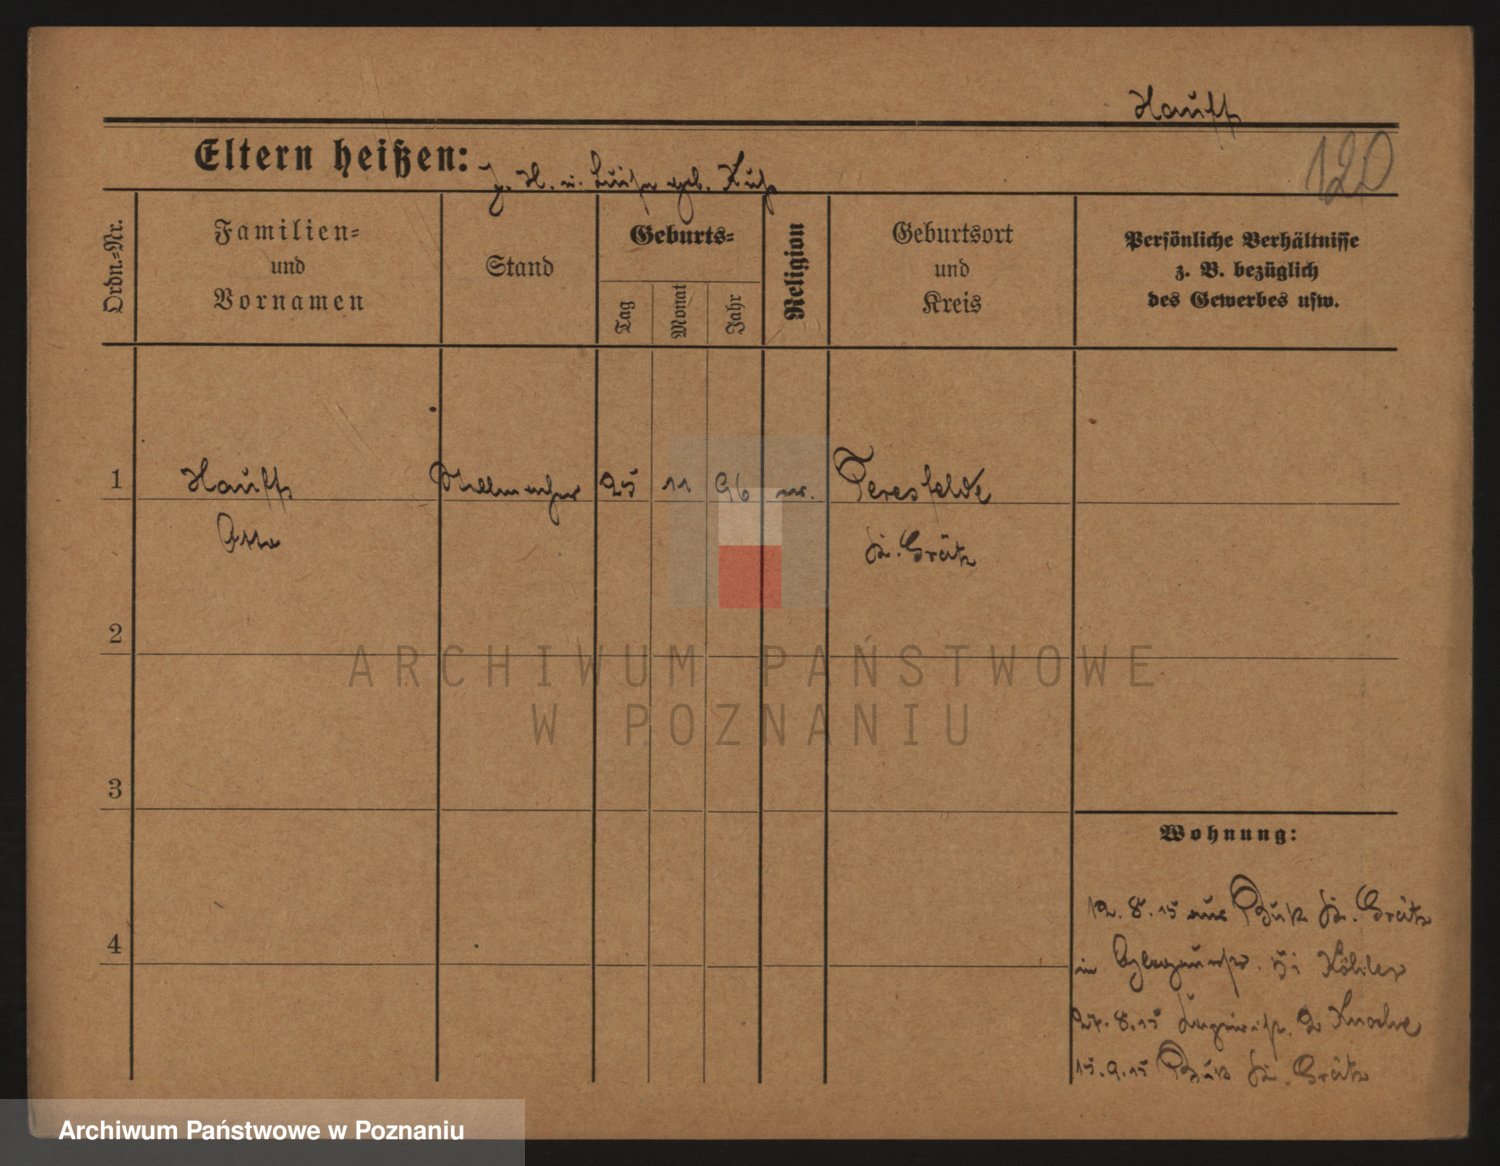 Hauff
120
Eltern heißen: J. H. u. Luise geb.
Ordn.-Nr.
Familien-
und
Vornamen
Stand
Geburts-
Tag
Monat
Jahr
Religion
Geburtsort
und
Kreis
Persönliche Verhältnisse
z. B. bezüglich
des Gewerbes usw.
1
Hauff Stellmacher 25 11 96 ev. Teresfelde
Otto Kr. Grätz
2
ARCHIWUM PAŃSTWOWE
W POZNANIU
3
Wohnung:
12.8.15 aus Buk Kr. Grätz
4
in 5 i Köhler
27.8.15 2 Knoche
15.9.15 Buk Kr. Grätz
Archiwum Państwowe w Poznaniu